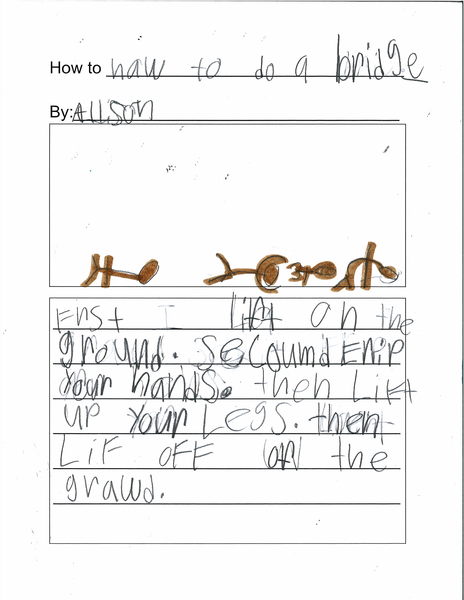 How to haw to do a bridge
By: Allison
First I lift on the
ground. Secound Enip
Your hands. then Lift
up Your Legs. then
Lif off on the
grawd.